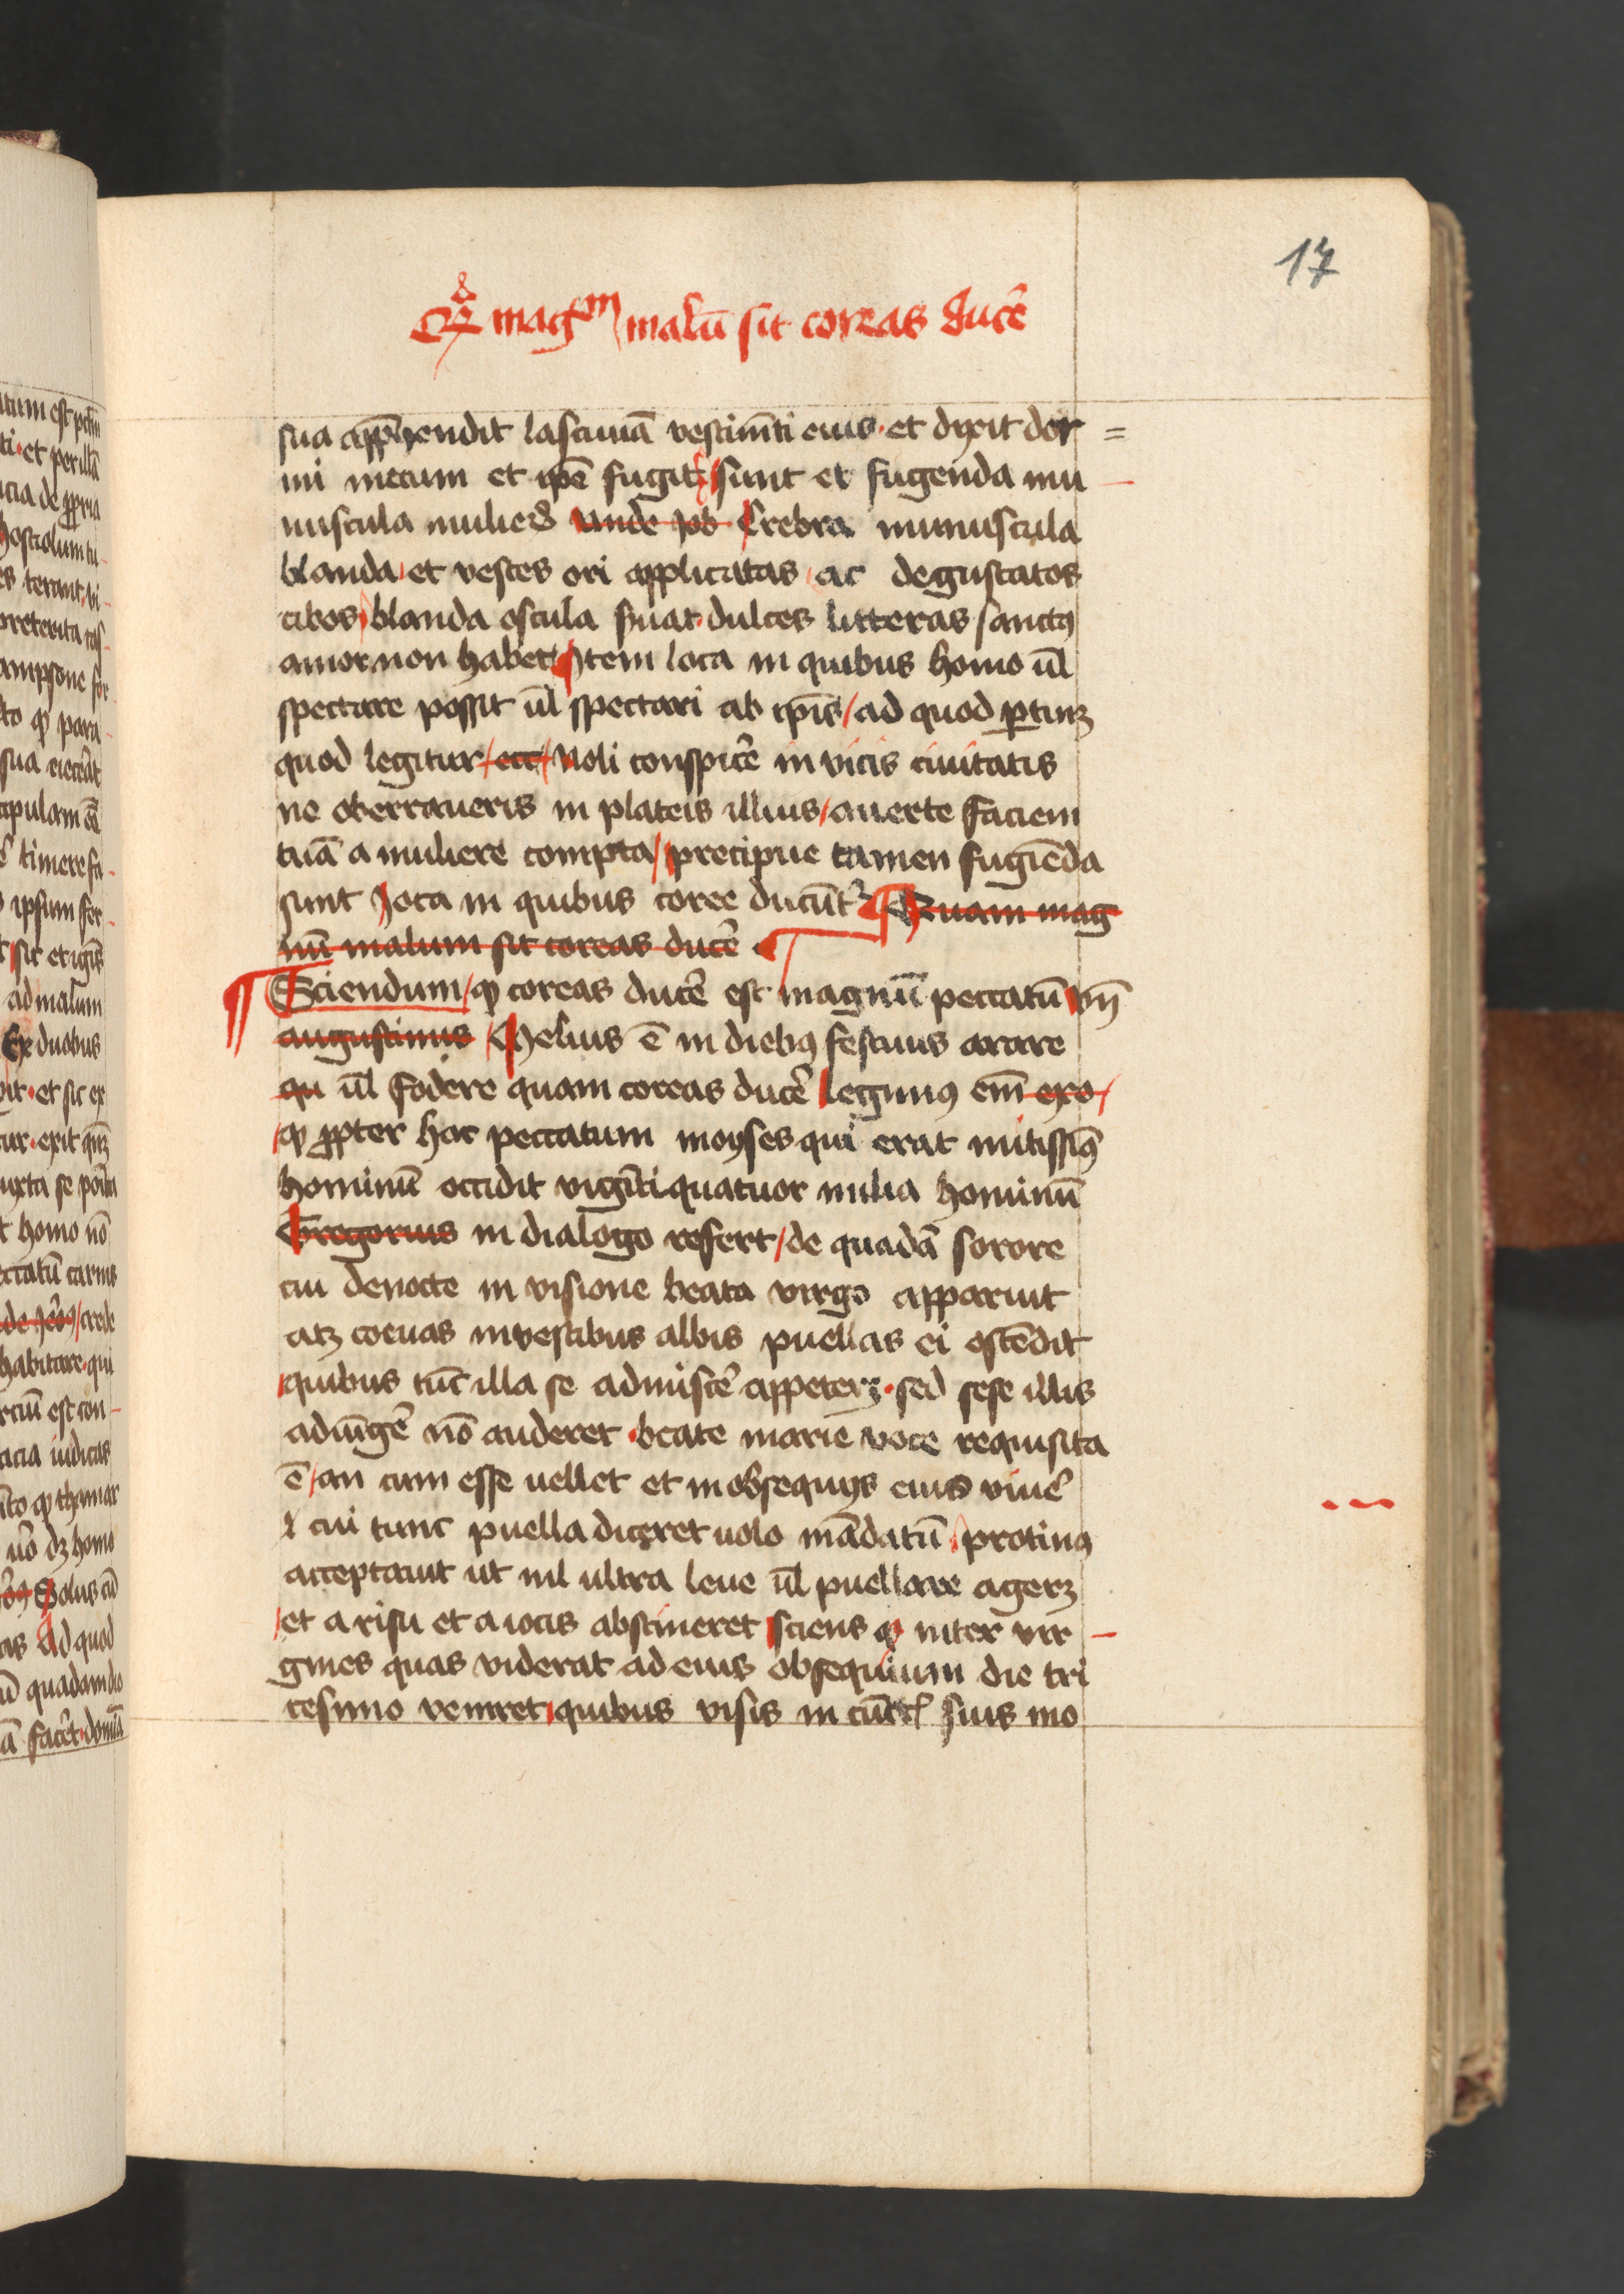 17
mag^m malū sit coreas ducē
sua app̄hendit lasciuiā vestimēti eius · et dixit dor=
mi mecum et ip̄e fugit / sunt et fugenda mu-
nuscula mulierꝫ vnde Job Crebra munuscula
blanda et vestes ori applicatas / ac degustatos
cibos / blanda oscula dulces litteras sanctꝰ
amor non habet Item loca in quibus homo ūl
spectare possit ūl spectari ab ip̄is / ad quod ꝑtinꝫ
quod legitur / ecc̄ / Noli conspicē in vicis ciuitatis
ne oberraueris in plateis illius / auerte faciem
tuā a muliere compta / precipue tamen fugiēda
sunt loca in quibus coree ducūt᷑ Quam mag
nū malum sit coreas ducē
Sciendum / ꝙ coreas ducē est magnū peccatū vn̄
augustinus Melius ē in diebꝰ festiuis arare
qu ūl fodere quam coreas ducē legimꝰ em̄ exo /
ꝙ ꝓpter hoc peccatum moyses qui erat mitissimꝰ
hominū occidit viginti quatuor milia hominū
Gregorius in dialogo refert / de quadā sorore
cui de nocte in visione beata virgo apparuit
atꝫ coeuas in vestibus albis puellas ei ostēdit
quibus tūc illa se admiscē appeterꝫ · sed sese illis
adiūgē nō auderet · beate marie voce requisita
ē / an cum esse uellet et in obsequijs eius viuē
cui tunc puella diceret uolo mādatū / protinꝰ
acceptauit ut nil ultra leue ūl puellare agerꝫ
et a risu et a iocis abstineret sciens ꝙ inter vir-
gines quas viderat ad eius obsequium die tri
cesimo veniret / quibus visis in cūctꝭ suis mo